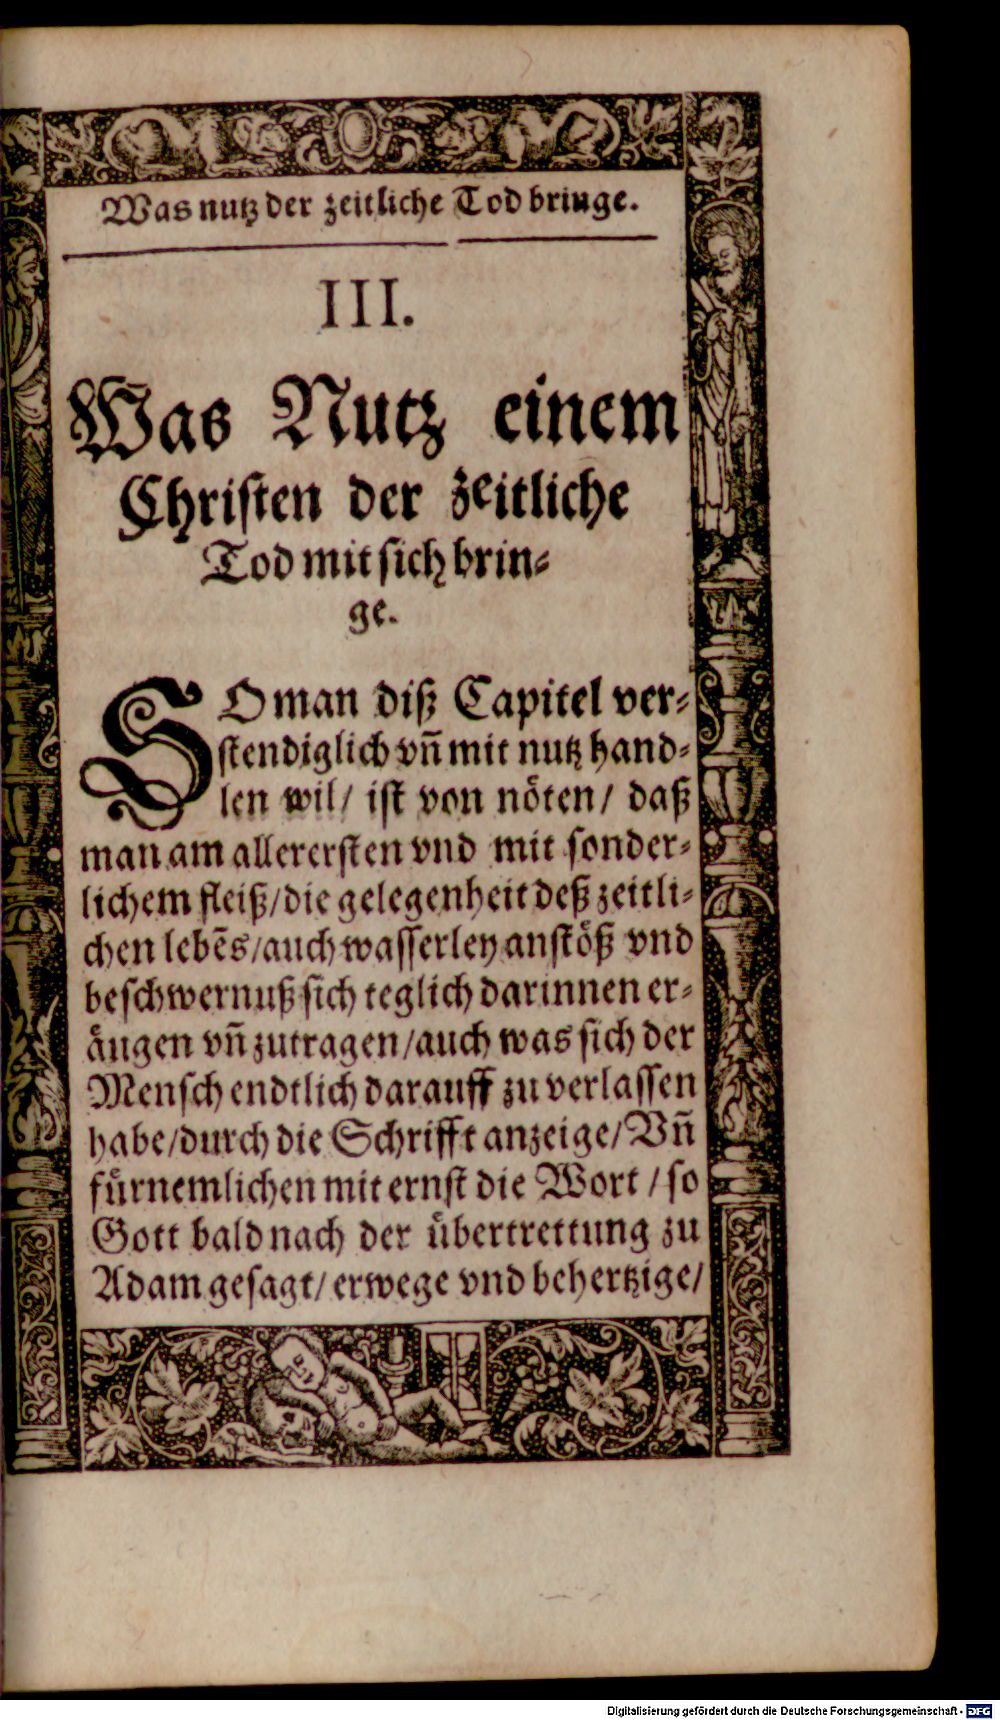 Was nutz der zeitliche Tod bringe.
III.
Was Nutz einem
Christen der zeitliche
Tod mit sich brin⸗
ge.
SO man diß Capitel ver⸗
stendiglich vñ mit nutz hand⸗
len wil/ ist von nöten/ daß
man am allerersten vnd mit sonder⸗
lichem fleiß/die gelegenheit deß zeitli⸗
chen lebẽs/auch wasserley anstöß vnd
beschwernuß sich teglich darinnen er⸗
äugen vñ zutragen/auch was sich der
Mensch endtlich darauff zu verlassen
habe/durch die Schrifft anzeige/Vñ
fürnemlichen mit ernst die Wort/so
Gott bald nach der übertrettung zu
Adam gesagt/erwege vnd behertzige/
Digitalisierung gefördert durch die Deutsche Forschungsgemeinschaft - DFG